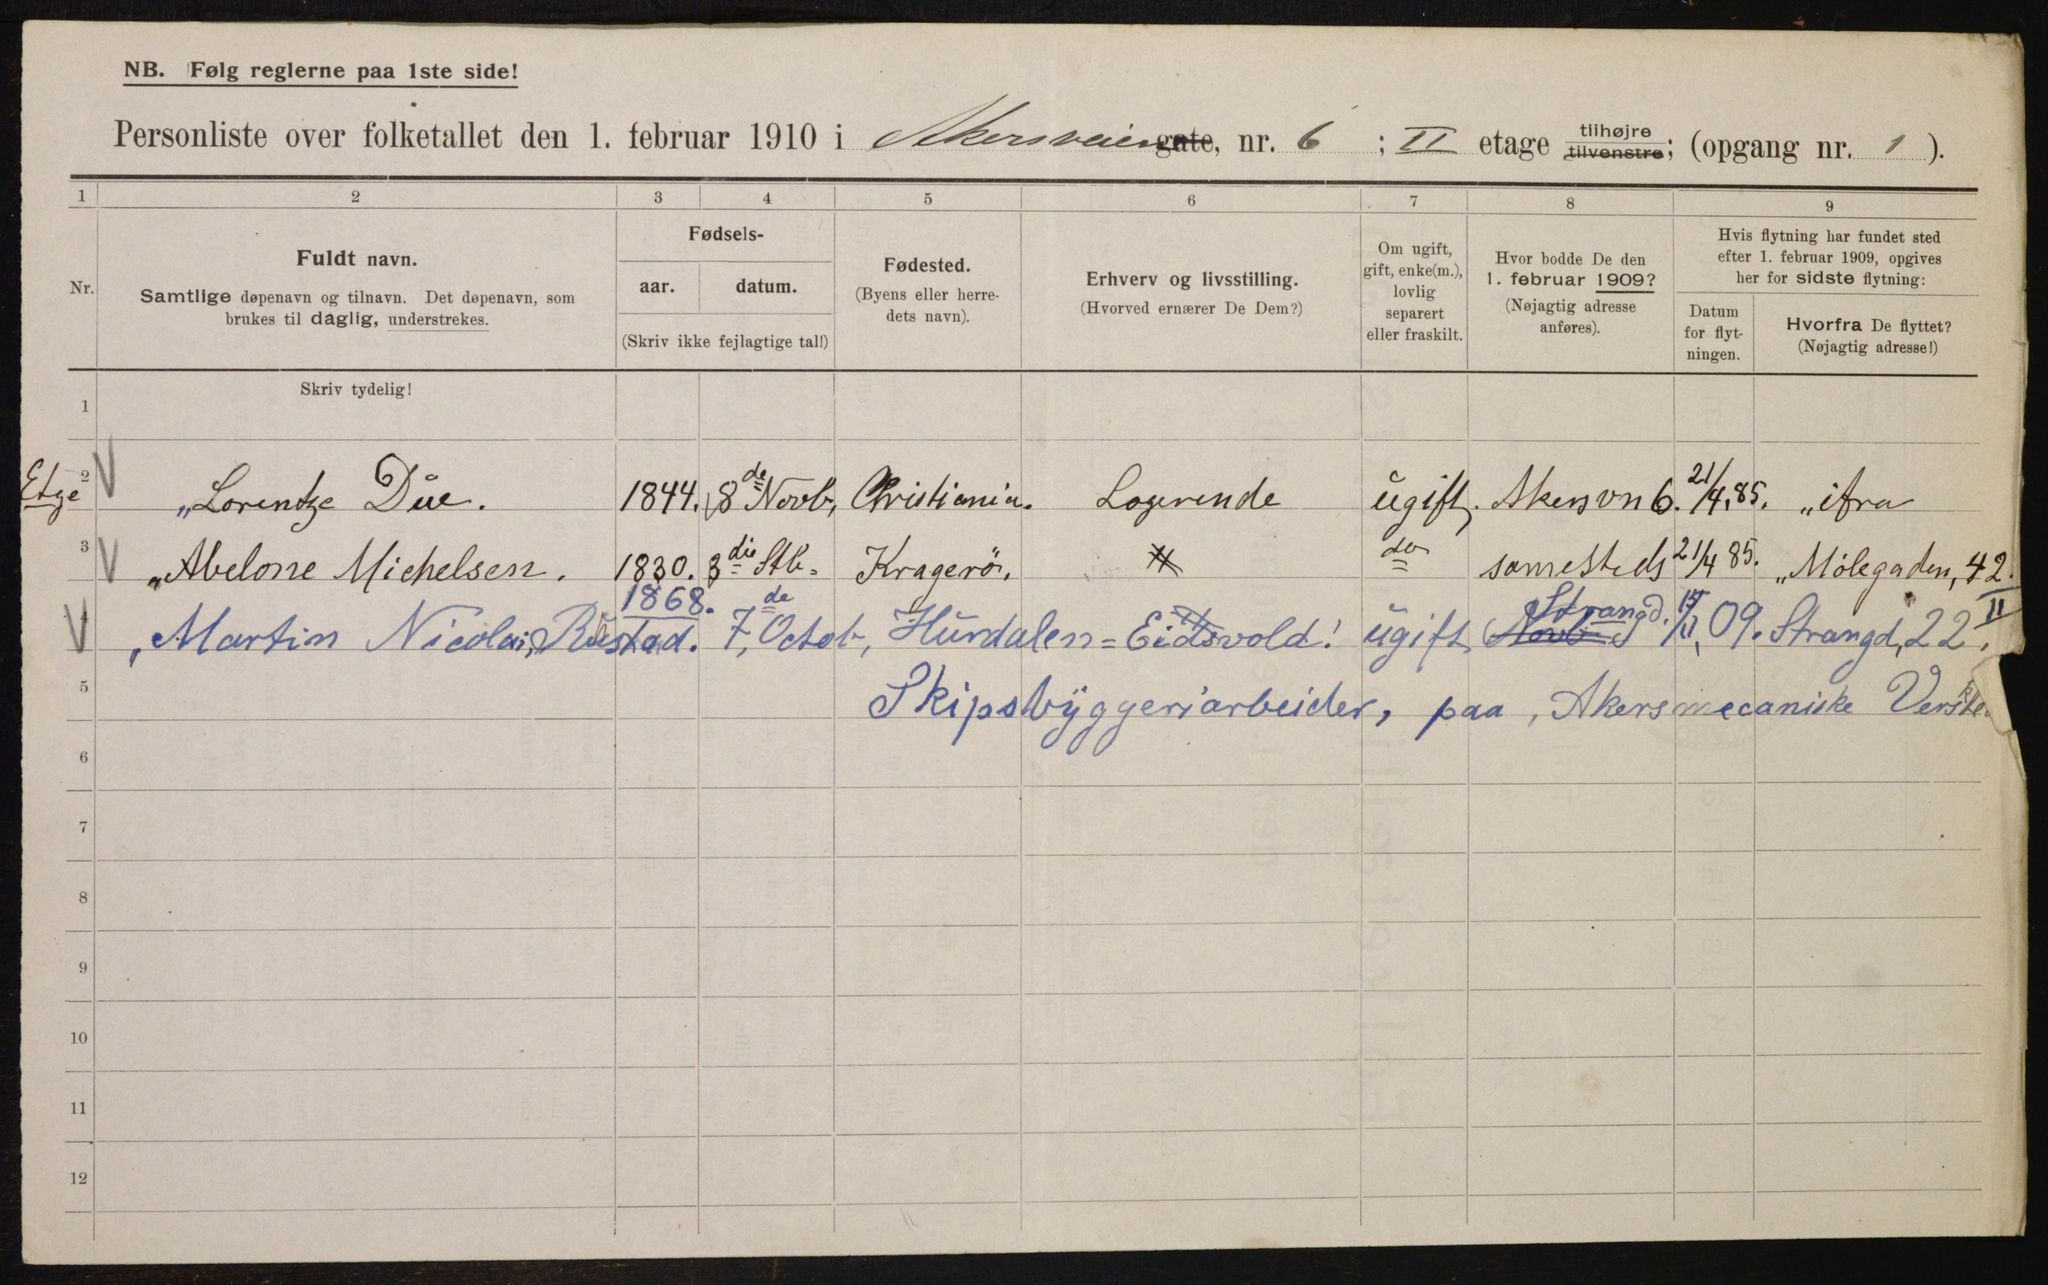 NB. Følg reglerne paa 1ste side!
Personliste over folketallet den 1. februar 1910 i Akersveien gate, nr. 6 ; II etage tilhøjre tilvenstre; (opgang nr. 1 ).
1 2 3 4 5 6 7 8 9
Nr.
Fuldt navn.
Samtlige døpenavn og tilnavn. Det døpenavn, som
brukes til daglig, understrekes.
Fødsels-
aar. datum.
(Skriv ikke fejlagtige tal!)
Fødested.
(Byens eller herre-
dets navn).
Erhverv og livsstilling.
(Hvorved ernærer De Dem?)
Om ugift,
gift, enke(m.),
lovlig
separert
eller fraskilt.
Hvor bodde De den
1. februar 1909?
(Nøjagtig adresse
anføres).
Hvis flytning har fundet sted
efter 1. februar 1909, opgives
her for sidste flytning:
Datum
for flyt-
ningen.
Hvorfra De flyttet?
(Nøjagtig adresse!)
Skriv tydelig!
1
Etge 2 „Lorentze Düe. 1844. 8de Novb, Christiania. Logerende ugift. Akersvn 6. 21/4, 85. „ifra
3 „Abelone Michelsen. 1830. 3die Kragerö, do samesteds 21/4 85. „Mölegaden, 42.
Martin Nicolai, Rustad. 1868. 7,de Octob, Hurdalen = Eidsvold! ugift Strangd. 09. Strangd, 22, II
5 Skipsbyggeriarbeider, paa, Akers mecaniske
6
7
8
9
10
11
12